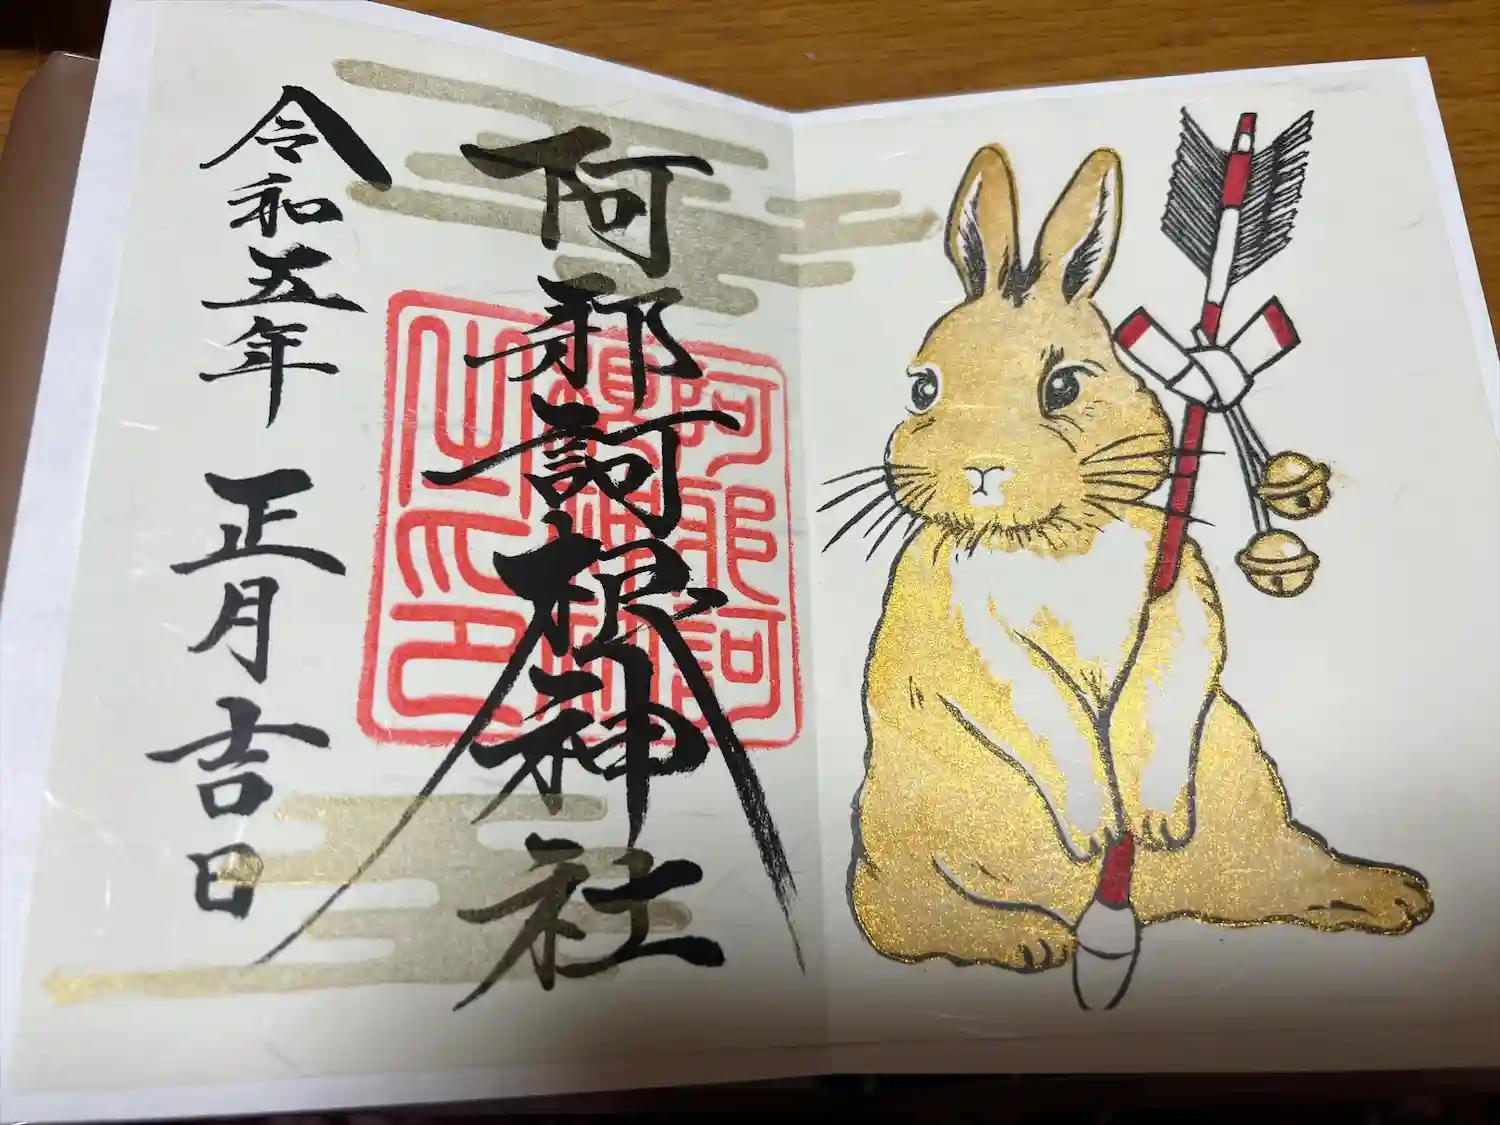 阿邪訶根神社
令和五年 正月吉日
阿邪訶
根神社
之印